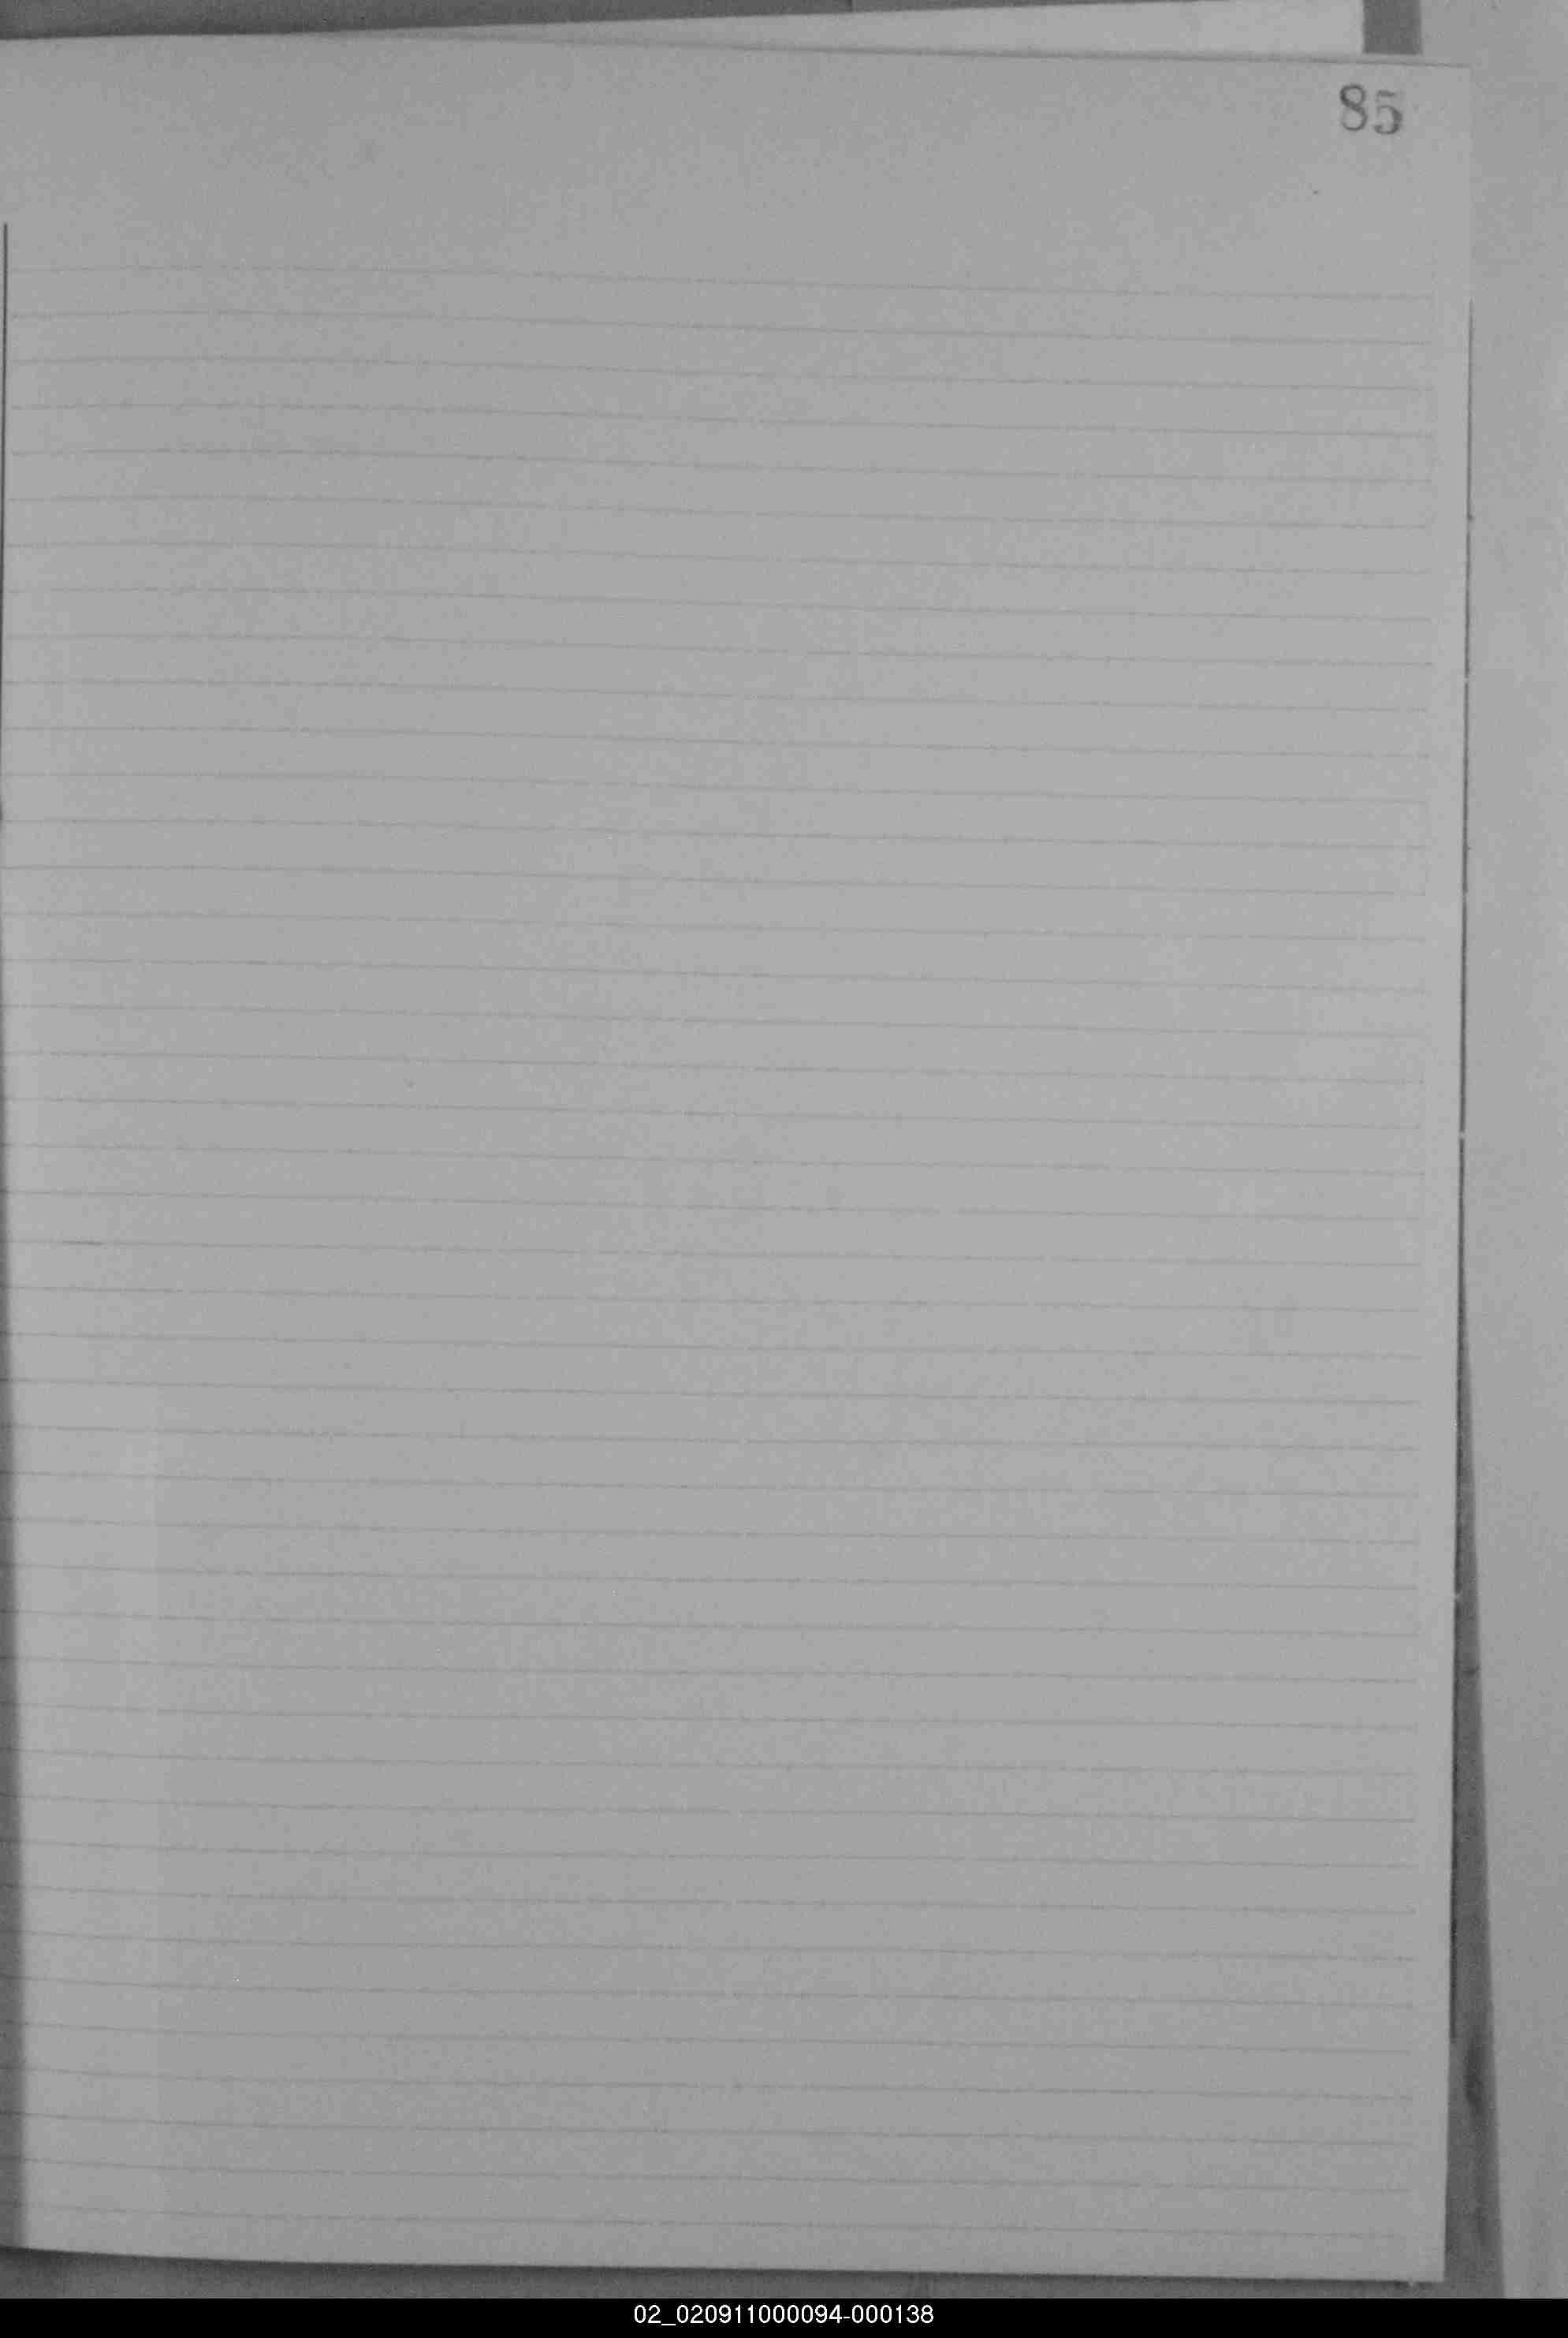 85
02_020911000094-000138